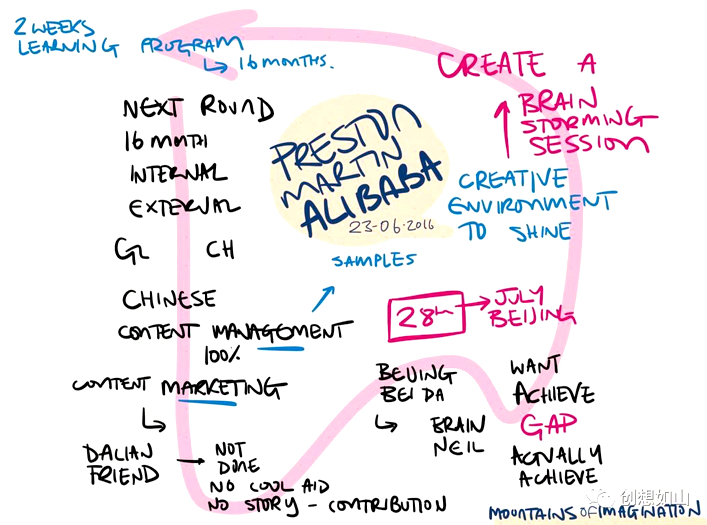 2 WEEKS
LEARNING PROGRAM
↳ 16 MONTHS.
CREATE A
BRAIN
STORMING
SESSION
NEXT ROUND
16 MNTH
INTERNAL
EXTERNAL
GL CH
PRESTON
MARTIN
ALIBABA
23-06-2016
CREATIVE
ENVIRONMENT
TO SHINE
SAMPLES
CHINESE
CONTENT MANAGEMENT
100%
CONTENT MARKETING
28th → JULY
BEIJING
BEIJING
BEI DA
↳ BRAIN
NEIL
WANT
ACHIEVE
GAP
ACTUALLY
ACHIEVE
DALIAN
FRIEND
→ NOT
DONE
NO COOL AID
NO STORY - CONTRIBUTION
创想如山
MOUNTAINS OF IMAGINATION